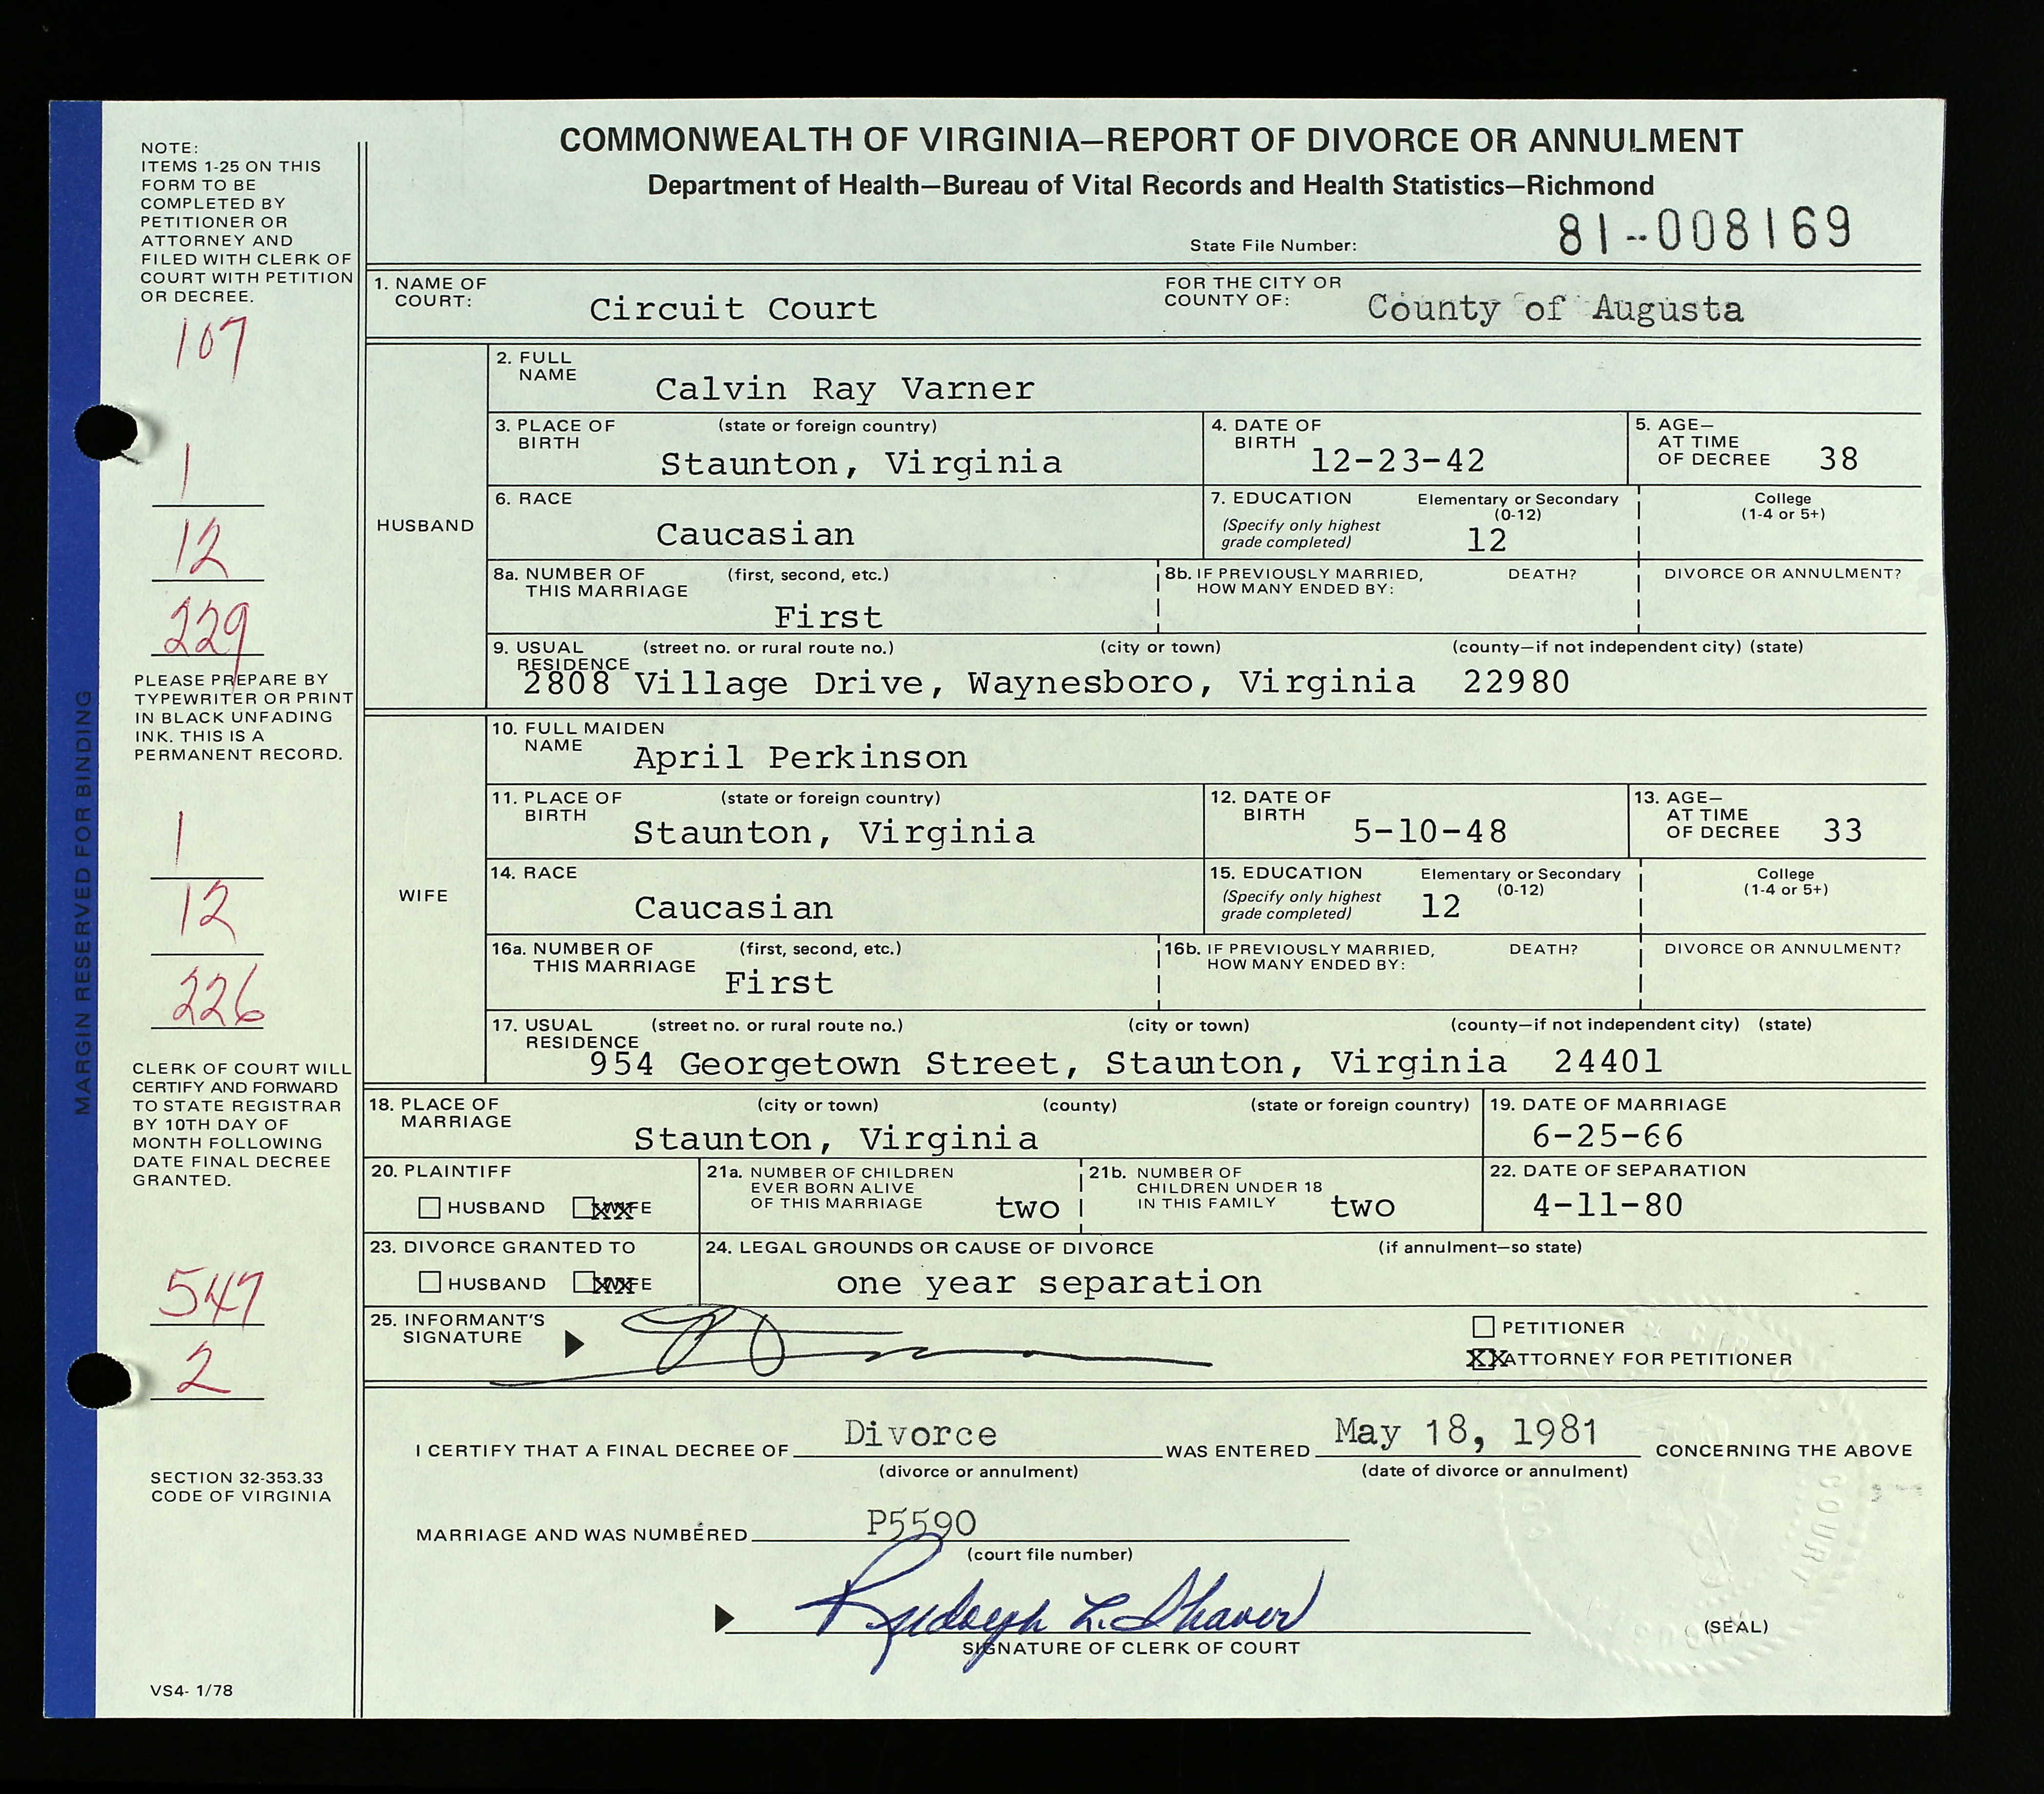 COMMONWEALTH OF VIRGINIA—REPORT OF DIVORCE OR ANNULMENT
Department of Health—Bureau of Vital Records and Health Statistics—Richmond
State File Number: 81--008169
NOTE:
ITEMS 1-25 ON THIS
FORM TO BE
COMPLETED BY
PETITIONER OR
ATTORNEY AND
FILED WITH CLERK OF
COURT WITH PETITION
OR DECREE.
107
1
12
229
PLEASE PREPARE BY
TYPEWRITER OR PRINT
IN BLACK UNFADING
INK. THIS IS A
PERMANENT RECORD.
1
12
226
CLERK OF COURT WILL
CERTIFY AND FORWARD
TO STATE REGISTRAR
BY 10TH DAY OF
MONTH FOLLOWING
DATE FINAL DECREE
GRANTED.
547
2
SECTION 32-353.33
CODE OF VIRGINIA
VS4- 1/78
MARGIN RESERVED FOR BINDING
1. NAME OF COURT: Circuit Court FOR THE CITY OR COUNTY OF: County of Augusta
HUSBAND
2. FULL NAME Calvin Ray Varner
3. PLACE OF BIRTH (state or foreign country) Staunton, Virginia
4. DATE OF BIRTH 12-23-42
5. AGE— AT TIME OF DECREE 38
6. RACE Caucasian
7. EDUCATION (Specify only highest grade completed) Elementary or Secondary (0-12) 12 College (1-4 or 5+)
8a. NUMBER OF THIS MARRIAGE (first, second, etc.) First
8b. IF PREVIOUSLY MARRIED, HOW MANY ENDED BY: DEATH? DIVORCE OR ANNULMENT?
9. USUAL RESIDENCE (street no. or rural route no.) (city or town) (county—if not independent city) (state)
2808 Village Drive, Waynesboro, Virginia 22980
WIFE
10. FULL MAIDEN NAME April Perkinson
11. PLACE OF BIRTH (state or foreign country) Staunton, Virginia
12. DATE OF BIRTH 5-10-48
13. AGE— AT TIME OF DECREE 33
14. RACE Caucasian
15. EDUCATION (Specify only highest grade completed) Elementary or Secondary (0-12) 12 College (1-4 or 5+)
16a. NUMBER OF THIS MARRIAGE (first, second, etc.) First
16b. IF PREVIOUSLY MARRIED, HOW MANY ENDED BY: DEATH? DIVORCE OR ANNULMENT?
17. USUAL RESIDENCE (street no. or rural route no.) (city or town) (county—if not independent city) (state)
954 Georgetown Street, Staunton, Virginia 24401
18. PLACE OF MARRIAGE (city or town) (county) (state or foreign country) Staunton, Virginia
19. DATE OF MARRIAGE 6-25-66
20. PLAINTIFF HUSBAND XX WIFE
21a. NUMBER OF CHILDREN EVER BORN ALIVE OF THIS MARRIAGE two
21b. NUMBER OF CHILDREN UNDER 18 IN THIS FAMILY two
22. DATE OF SEPARATION 4-11-80
23. DIVORCE GRANTED TO HUSBAND XX WIFE
24. LEGAL GROUNDS OR CAUSE OF DIVORCE (if annulment—so state) one year separation
25. INFORMANT'S SIGNATURE
PETITIONER
XX ATTORNEY FOR PETITIONER
I CERTIFY THAT A FINAL DECREE OF Divorce WAS ENTERED May 18, 1981 CONCERNING THE ABOVE
(divorce or annulment) (date of divorce or annulment)
MARRIAGE AND WAS NUMBERED P5590
(court file number)
Rudolph L. Shaver
SIGNATURE OF CLERK OF COURT
(SEAL)